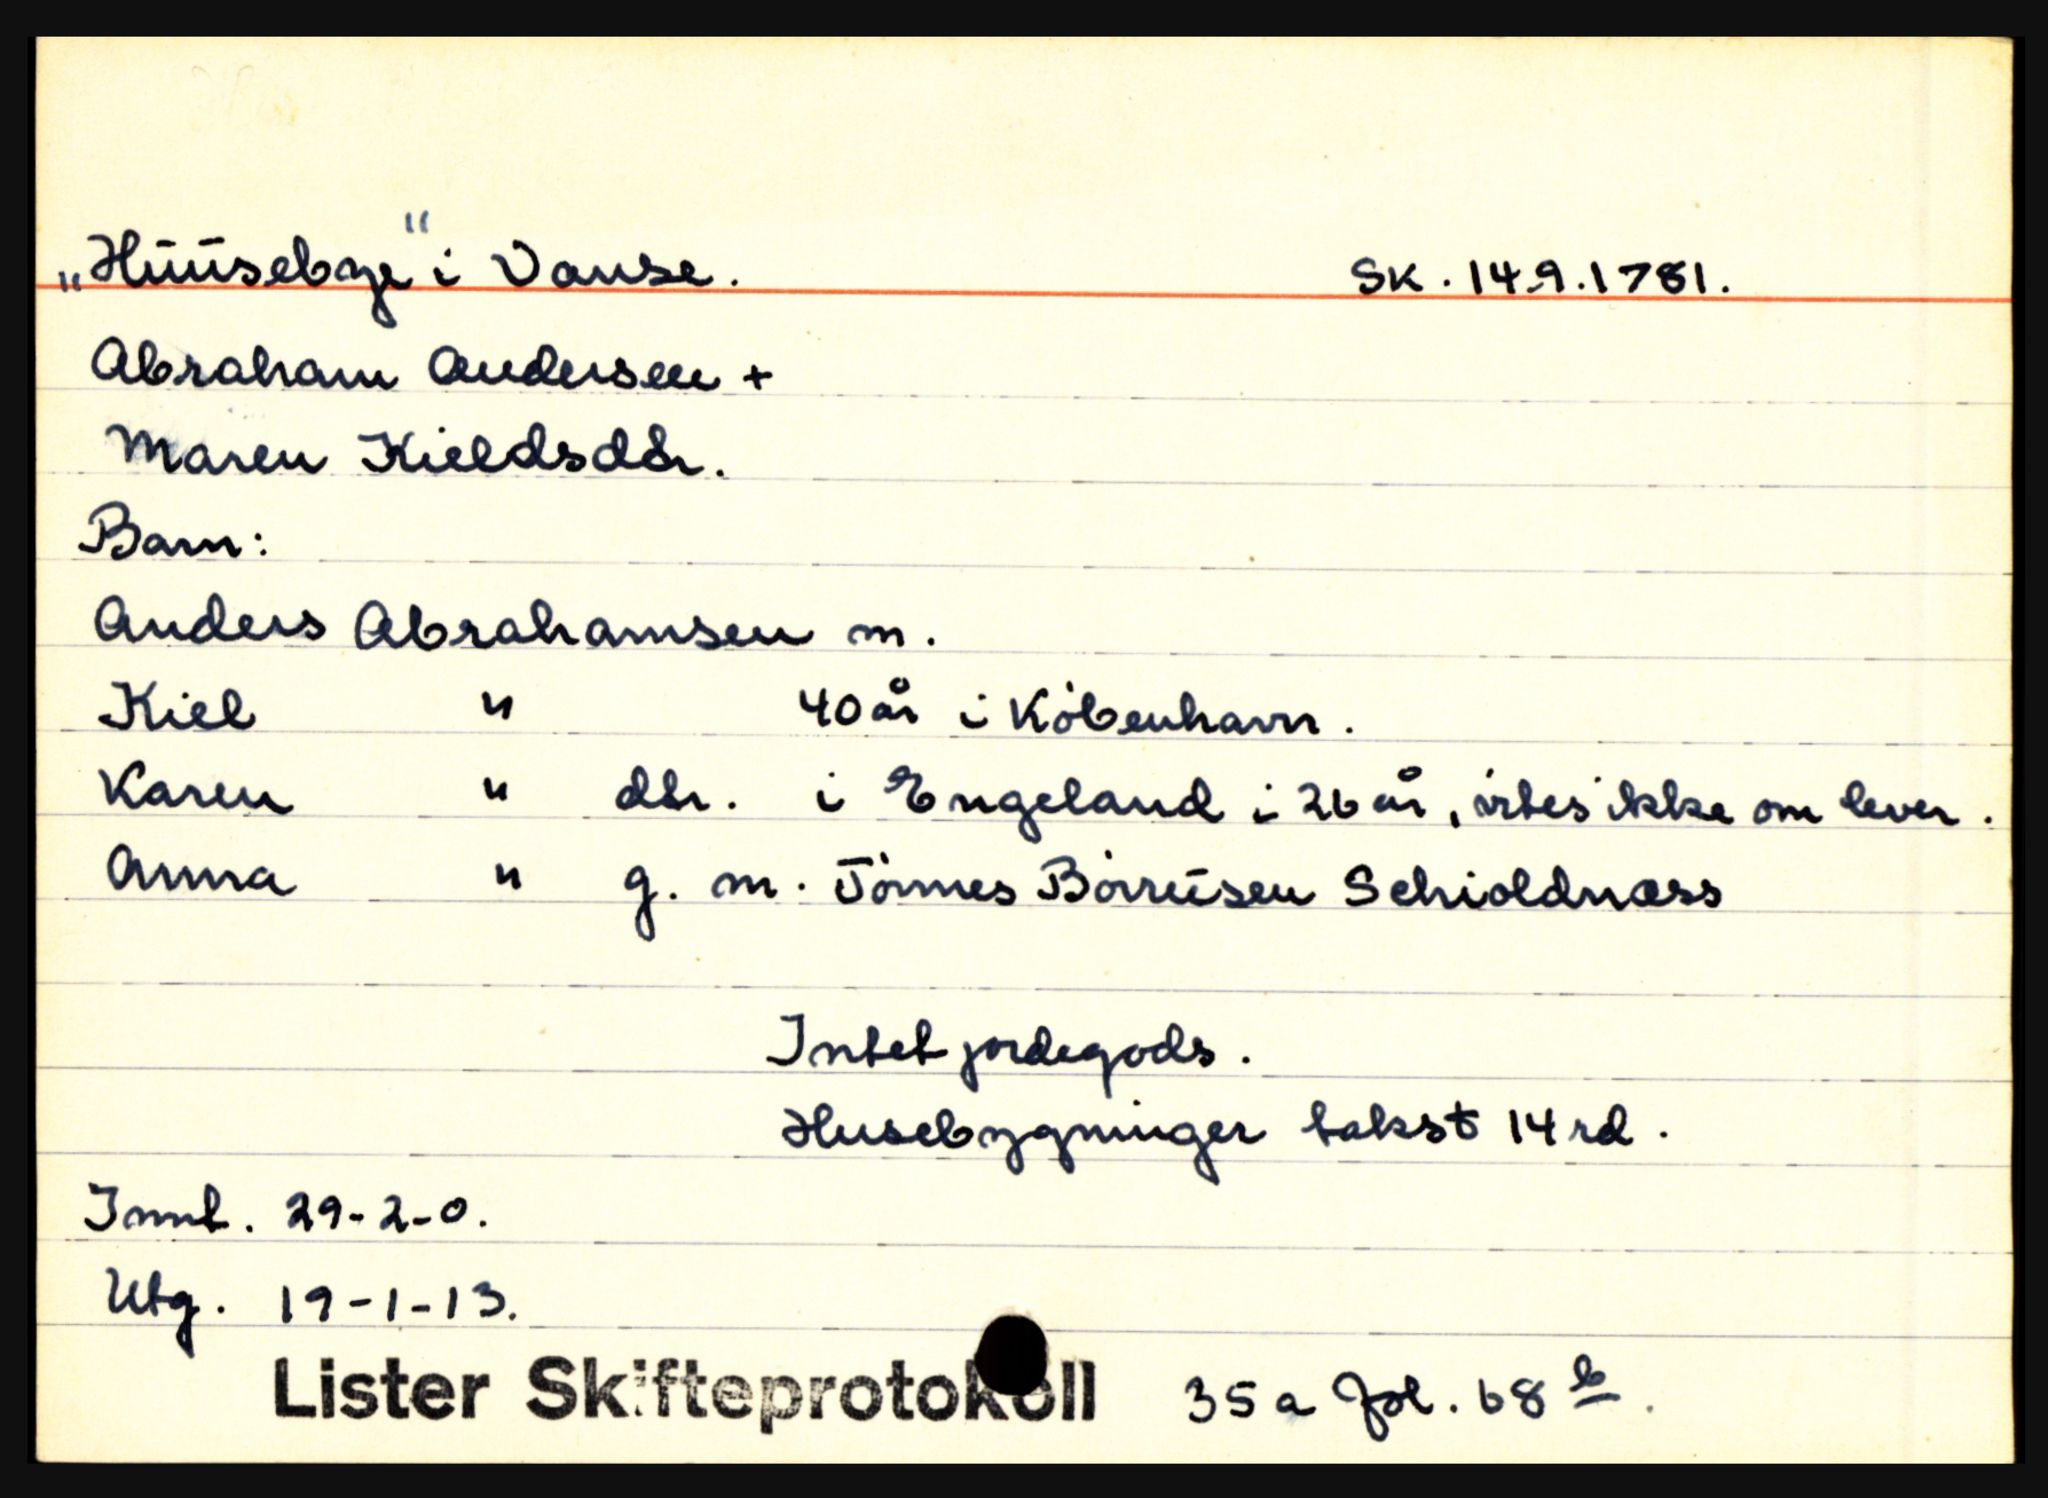 „Hūūsebye" i Vanse. Sk. 14.9.1781.
Abraham Andersen +
Maren Kieldsdtr.
Barn:
Anders Abrahamsen m.
Kiel " 40 år i København.
Karen " dtr. i Engeland i 26 år, vites ikke om lever.
Anna " g. m. Tønnes Børrūsen Schioldnæss
Intet jordegods.
Husebygninger takst 14 rd.
Innt. 29-2-0.
Utg. 19-1-13.
Lister Skifteprotokoll 35a fol. 68 b.